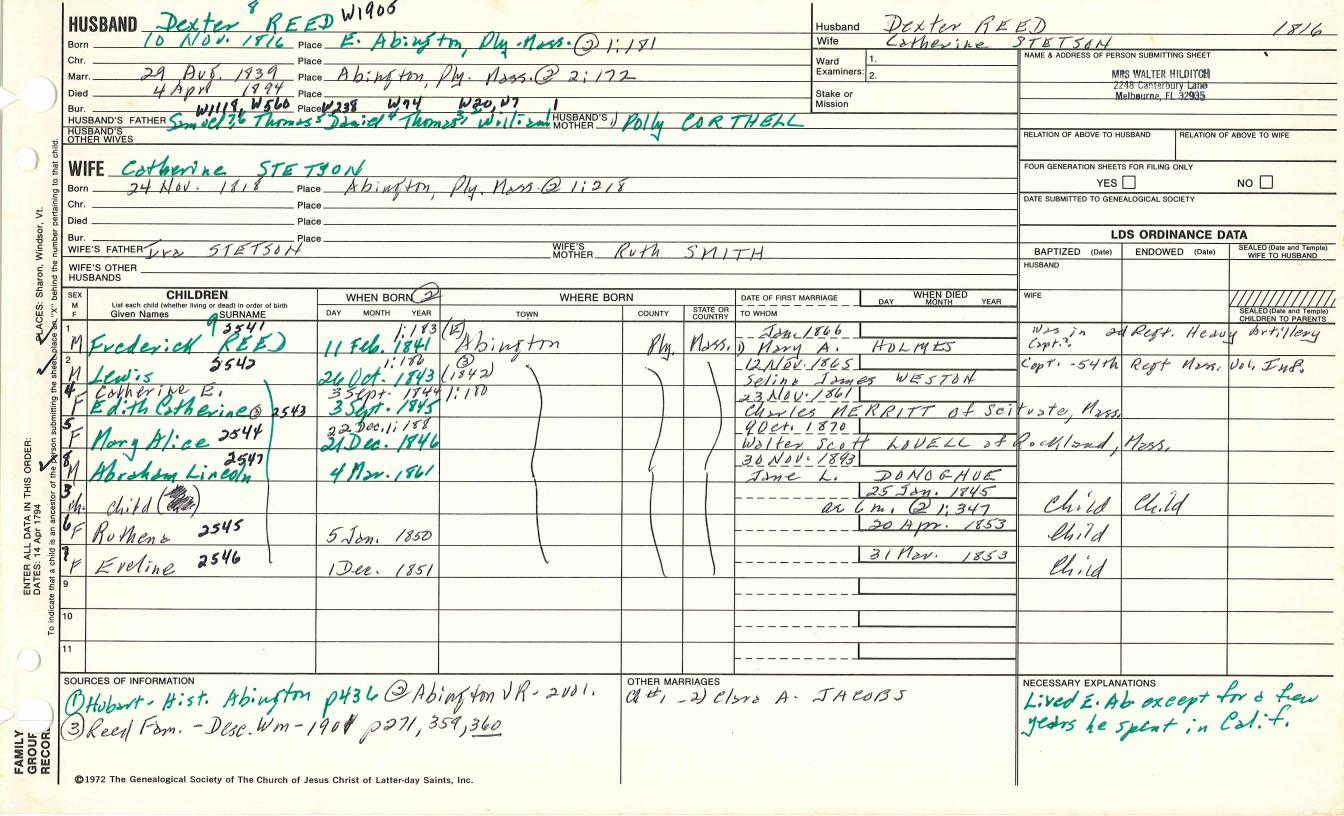 HUSBAND Dexter 8 REED W1905
Born 10 Nov. 1816 Place E. Abington, Ply. Mass. ② 1:181
Chr. Place
Marr. 29 Aug. 1839 Place Abington, Ply. Mass. ② 2:172
Died 4 Apr 1894 Place
Bur. W1118, W560 Place W238 W94 W20, W7 1
HUSBAND'S FATHER Samuel 7,6 Thomas 5 Daniel 4 Thomas 3,2 William HUSBAND'S MOTHER 1) Polly CORTHELL
HUSBAND'S OTHER WIVES
WIFE Catherine STETSON
Born 24 Nov. 1818 Place Abington, Ply. Mass. ② 1:218
Chr. Place
Died Place
Bur. Place
WIFE'S FATHER Ira STETSON WIFE'S MOTHER Ruth SMITH
WIFE'S OTHER HUSBANDS
Husband Dexter REED 1816
Wife Catherine STETSON
Ward Examiners: 1.
2.
Stake or Mission
NAME & ADDRESS OF PERSON SUBMITTING SHEET
MRS WALTER HILDITCH
2248 Canterbury Lane
Melbourne, FL 32935
RELATION OF ABOVE TO HUSBAND RELATION OF ABOVE TO WIFE
FOUR GENERATION SHEETS FOR FILING ONLY
YES NO
DATE SUBMITTED TO GENEALOGICAL SOCIETY
LDS ORDINANCE DATA
BAPTIZED (Date) ENDOWED (Date) SEALED (Date and Temple) WIFE TO HUSBAND
HUSBAND
WIFE
SEALED (Date and Temple) CHILDREN TO PARENTS
SEX M F CHILDREN WHEN BORN ② WHERE BORN DATE OF FIRST MARRIAGE WHEN DIED
List each child (whether living or dead) in order of birth
Given Names SURNAME DAY MONTH YEAR TOWN COUNTY STATE OR COUNTRY TO WHOM DAY MONTH YEAR
1 9 2541 1:183 (E) Jan. 1866 Was in 2d Regt. Heavy Artillery
M Frederick REED 11 Feb. 1841 Abington Ply. Mass. 1) Mary A. HOLMES Capt?
2 2542 1:186 ③ 12 Nov. 1865
M Lewis 26 Oct. 1843 (1842) Selina James WESTON Capt. - 54th Regt Mass. Vol. Inf.
4 Catherine E. 3 Sept. 1844 1:180 23 Nov. 1861
F Edith Catherine ③ 2543 3 Sept. 1845 Charles MERRITT of Scituate, Mass.
5 22 Dec. 1:188 9 Oct. 1870
F Mary Alice 2544 21 Dec. 1846 Walter Scott LOVELL of Rockland, Mass.
8 2547 30 Nov. 1893
M Abraham Lincoln 4 Mar. 1861 Jane L. DONOGHUE
3 25 Jan. 1845
ch. Child ae 6 m. ② 1:347 Child Child
6 20 Apr. 1853
F Ruthena 2545 5 Jan. 1850 Child
7 31 Mar. 1853
F Eveline 2546 1 Dec. 1851 Child
9
10
11
SOURCES OF INFORMATION
① Hobart - Hist. Abington p436 ② Abington VR - 2vol.
③ Reed Fam. - Desc. Wm - 1901 p271, 359, 360
OTHER MARRIAGES
Ch #1, - 2) Clara A. JACOBS
NECESSARY EXPLANATIONS
Lived E. Ab except for a few
years he spent in Calif.
©1972 The Genealogical Society of The Church of Jesus Christ of Latter-day Saints, Inc.
ENTER ALL DATA IN THIS ORDER:
DATES: 14 Apr 1794 PLACES: Sharon, Windsor, Vt.
To indicate that a child is an ancestor of the person submitting the sheet, place an "X" behind the number pertaining to that child.
FAMILY
GROUP
RECORD